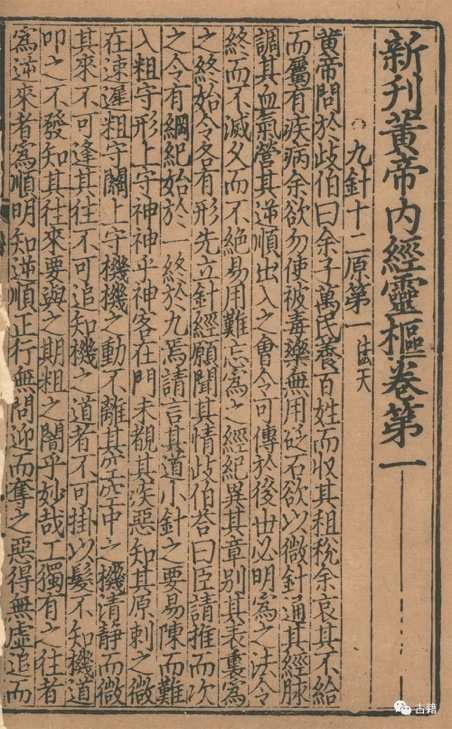 新刊黃帝內經靈樞卷第一
九針十二原第一 法天
黃帝問於歧伯曰余子萬民養百姓而収其租稅余哀其不給
而屬有疾病余欲勿使被毒藥無用砭石欲以微針通其經脉
調其血氣營其逆順出入之會令可傳於後世必明爲之法令
終而不滅乆而不絶易用難忘爲之經紀異其章别其表裏爲
之終始令各有形先立針經願聞其情歧伯荅曰臣請推而次
之令有綱紀始於一終於九焉請言其道小針之要易陳而難
入粗守形上守神神乎神客在門未覩其疾惡知其原刺之微
在速遲粗守關上守機機之動不離其空空中之機清靜而微
其來不可逢其往不可追知機之道者不可掛以髮不知機道
叩之不發知其往來要與之期粗之闇乎妙哉工獨有之往者
爲逆來者爲順明知逆順正行無問迎而奪之惡得無虛追而
古籍